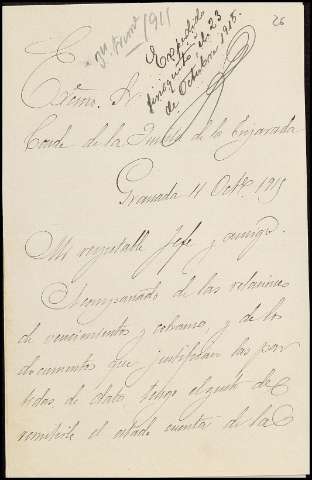 26
3er Trimre 1915
Expedido
finiquito eb. 23
de Octubre 1915.
Excmo. Sr.
Conde de la Quinta de la Enjarada
Granada 11 Octe. 1915
Mi respetable Jefe y amigo.
Acompañado de las relaciones
de vencimientos y cobranza, y de los
documentos que justifican las par
tidas de data tengo el gusto de
remitirle el estado cuenta de la